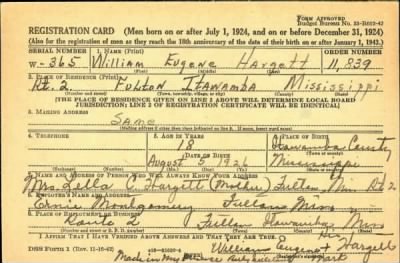 FORM APPROVED
REGISTRATION CARD (Men born on or after July 1, 1924, and on or before December 31, 1924)
(Also for the registration of men as they reach the 18th anniversary of the date of their birth on or after January 1, 1943.)
SERIAL NUMBER 1. NAME ORDER NUMBER
W-365 William Eugene Hargett 11,839
2. PLACE OF RESIDENCE (Print)
Rt. 2. FULTON ITAWAMBA MISSISSIPPI
(Number and street) (Town, township, village, or city) (County) (State)
[THE PLACE OF RESIDENCE GIVEN ON LINE 2 ABOVE WILL DETERMINE LOCAL BOARD
JURISDICTION; LINE 2 OF REGISTRATION CERTIFICATE WILL BE IDENTICAL]
3. MAILING ADDRESS
Same
(Mailing address if other than place indicated on line 2. If same insert word same)
4. TELEPHONE 5. AGE IN YEARS 6. PLACE OF BIRTH
18 Itawamba County
DATE OF BIRTH (Town or county)
August 5 1926 Mississippi
7. NAME AND ADDRESS OF PERSON WHO WILL ALWAYS KNOW YOUR ADDRESS
Mrs. Hargett (Mother) Fulton, Miss Rt 2
8. EMPLOYER'S NAME AND ADDRESS
Ernie Montgomery Fulton Miss
9. PLACE OF EMPLOYMENT OR BUSINESS
Route 2 Fulton Itawamba Miss
I AFFIRM THAT I HAVE VERIFIED ABOVE ANSWERS AND THAT THEY ARE TRUE.
his
DSS Form 1 William Eugene X Hargett
Made in my Mark